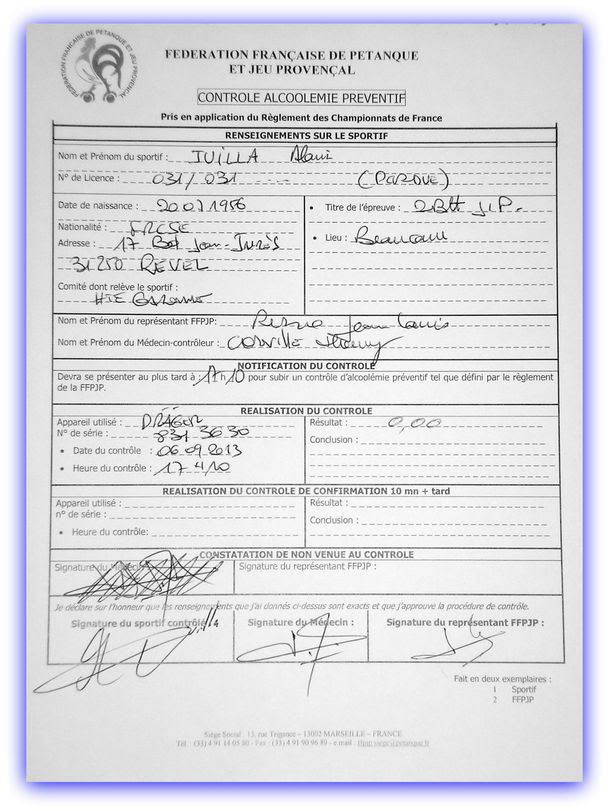 FÉDÉRATION FRANÇAISE DE PÉTANQUE ET JEU PROVENÇAL
FEDERATION FRANÇAISE DE PETANQUE
ET JEU PROVENÇAL
CONTROLE ALCOOLEMIE PREVENTIF
Pris en application du Règlement des Championnats de France
RENSEIGNEMENTS SUR LE SPORTIF
Nom et Prénom du sportif : JUILLA Alain
N° de Licence : 031/031 (PERDUE)
Date de naissance : 20 07 1956
• Titre de l'épreuve :
Nationalité : FRCSE
Adresse : 17 Bd Jean-Jurès
• Lieu : Beaucaire
31250 REVEL
Comité dont relève le sportif :
HTE GARONNE
Nom et Prénom du représentant FFPJP: Jean Louis
Nom et Prénom du Médecin-contrôleur : Thierry
NOTIFICATION DU CONTROLE
Devra se présenter au plus tard à 17 h 10 pour subir un contrôle d'alcoolémie préventif tel que défini par le règlement
de la FFPJP.
REALISATION DU CONTROLE
Appareil utilisé : DRÄGER
Résultat : 0,00
N° de série : 831 36 30
Conclusion :
• Date du contrôle : 06.09.2013
• Heure du contrôle : 17
REALISATION DU CONTROLE DE CONFIRMATION 10 mn + tard
Appareil utilisé :
Résultat :
n° de série :
Conclusion :
• Heure du contrôle:
CONSTATATION DE NON VENUE AU CONTROLE
Signature du Médecin :
Signature du représentant FFPJP :
Je déclare sur l'honneur que les renseignements que j'ai donnés ci-dessus sont exacts et que j'approuve la procédure de contrôle.
Signature du sportif contrôlé
Signature du Médecin :
Signature du représentant FFPJP :
Fait en deux exemplaires :
1 Sportif
2 FFPJP
Siège Social : 13, rue Trigance – 13002 MARSEILLE – FRANCE
Tél : (33) 4 91 14 05 80 - Fax : (33) 4 91 90 96 89 - e.mail :